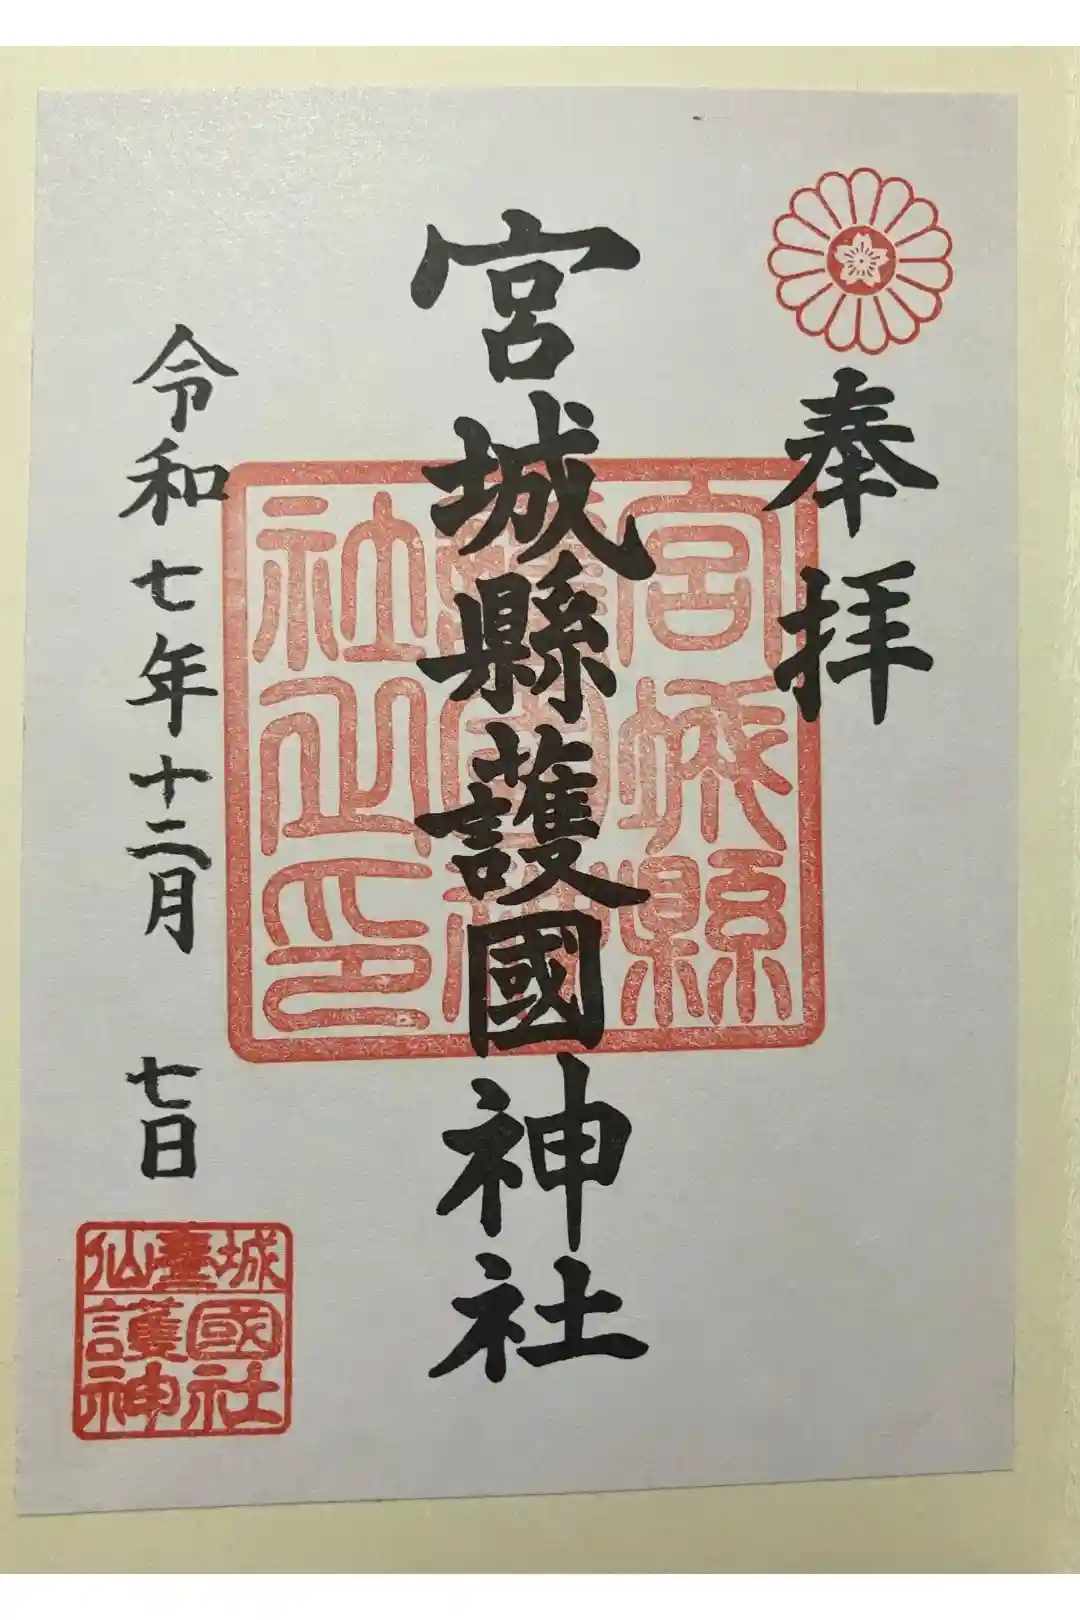 奉拝
宮城縣護國神社
宮城縣
護國神
社之印
令和七年十二月 七日
仙臺城
護國
神社